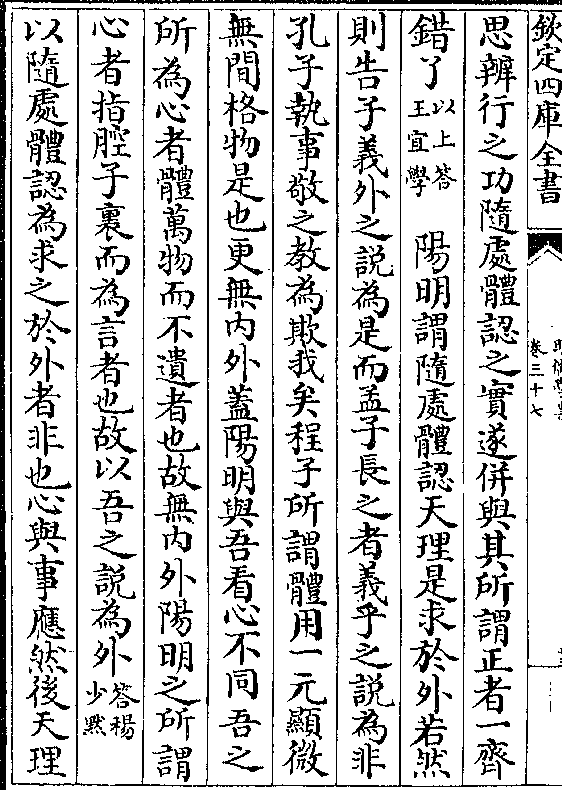 欽定四庫全書
卷三十七
思辨行之功隨處體認之實遂併與其所謂正者一齊
錯了以上答王宜學　陽明謂隨處體認天理是求於外若然
則告子義外之說為是而孟子長之者義乎之說為非
孔子執事敬之教為欺我矣程子所謂體用一元顯微
無間格物是也更無內外蓋陽明與吾看心不同吾之
所為心者體萬物而不遺者也故無內外陽明之所謂
心者指腔子裏而為言者也故以吾之說為外答楊少默
以隨處體認為求之於外者非也心與事應然後天理